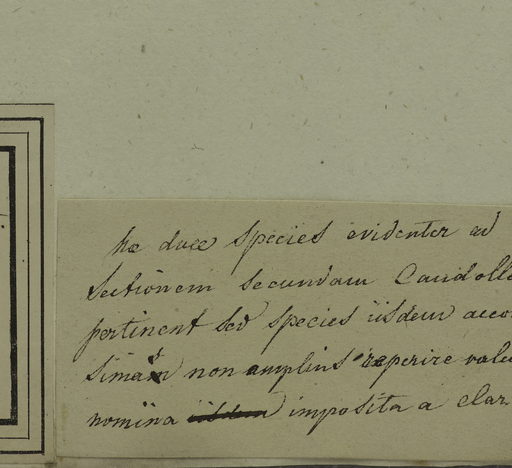 hæ duæ species evidenter ad
Sectionem secundam Candoll
pertinent sed species iisdem acco
non amplius reperire vale
nomina imposita a clar.